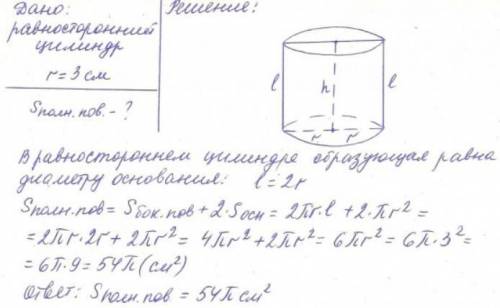 Дано:
равносторонний
цилиндр
r = 3 см
Sполн.пов. - ?
Решение:
l h l
r r
В равностороннем цилиндре образующая равна
диаметру основания: l = 2r
Sполн.пов = Sбок.пов + 2·Sосн = 2πr·l + 2·πr² =
= 2πr·2r + 2πr² = 4πr² + 2πr² = 6πr² = 6π·3² =
= 6π·9 = 54π (см²)
Ответ: Sполн.пов = 54π см²